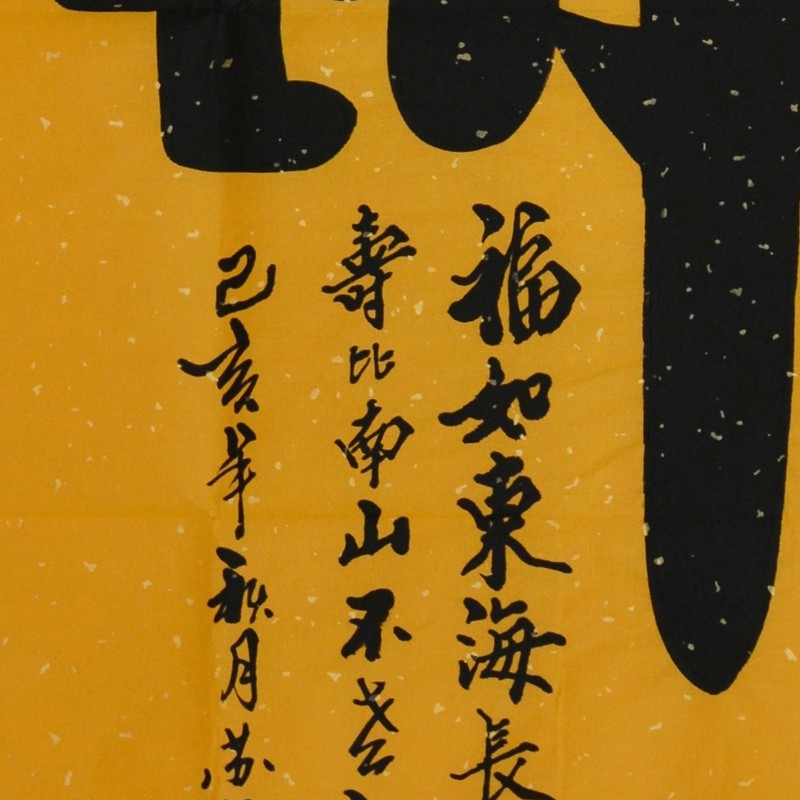 福如東海長
壽比南山不老
己亥年秋月苏